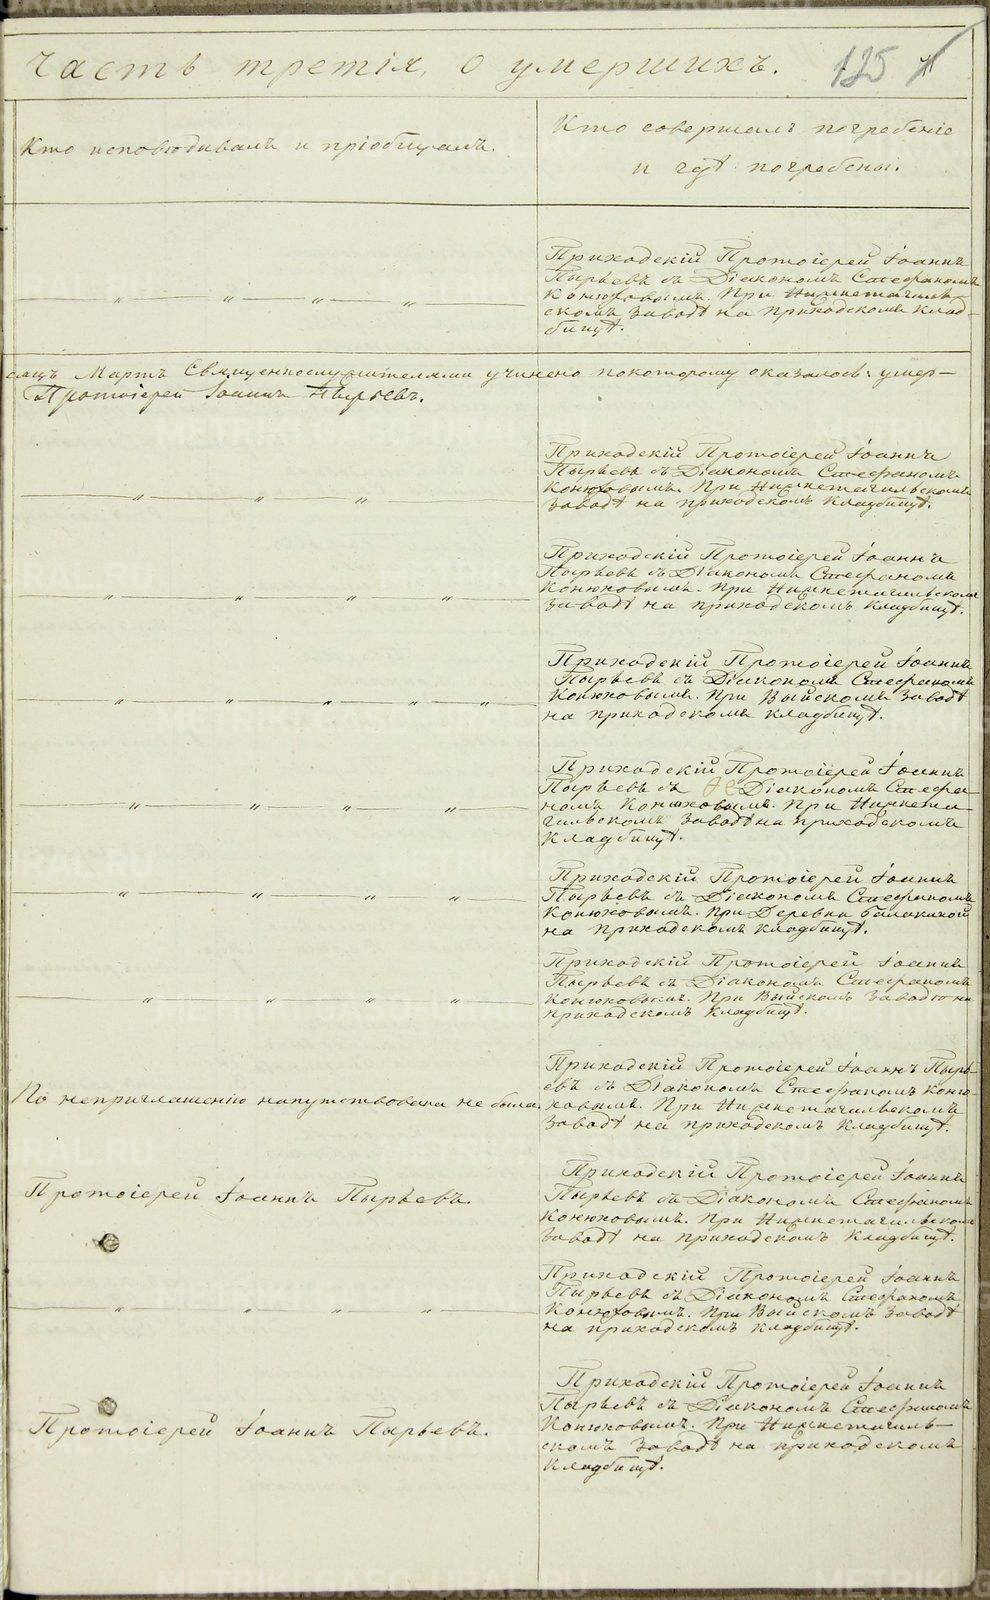 Часть третія, о умершихъ. 125
Кто исповѣдывалъ и пріобщалъ.
Кто совершалъ погребеніе
и гдѣ погребены.
Приходскій Протоіерей Іоаннъ
Пырьевъ съ Діакономъ Стефаномъ
Конюховымъ. При Нижнетагиль-
скомъ заводѣ на приходскомъ клад-
бищѣ.
сяцъ Мартъ Священнослужителями учинено покоторому оказалось: умер-
Протоіерей Іоаннъ Пырьевъ.
Приходскій Протоіерей Іоаннъ
Пырьевъ съ Діакономъ Стефаномъ
Конюховымъ. При Нижнетагильскомъ
заводѣ на приходскомъ кладбищѣ.
Приходскій Протоіерей Іоаннъ
Пырьевъ съ Діакономъ Стефаномъ
Конюховымъ. При Нижнетагильскомъ
заводѣ на приходскомъ кладбищѣ.
Приходскій Протоіерей Іоаннъ
Пырьевъ съ Діакономъ Стефаномъ
Конюховымъ. При Выйскомъ заводѣ
на приходскомъ кладбищѣ.
Приходскій Протоіерей Іоаннъ
Пырьевъ съ Діакономъ Стефа
номъ Конюховымъ. При Нижнета
гильскомъ заводѣ на приходскомъ
кладбищѣ.
Приходскій Протоіерей Іоаннъ
Пырьевъ съ Діакономъ Стефаномъ
Конюховымъ. При Деревнѣ Балакиной
на приходскомъ кладбищѣ.
Приходскій Протоіерей Іоаннъ
Пырьевъ съ Діакономъ Стефаномъ
Конюховымъ. При Выйскомъ заводѣ на
приходскомъ кладбищѣ.
По неприглашенію напутствована не была.
Приходскій Протоіерей Іоаннъ Пырь-
евъ съ Діакономъ Стефаномъ Коню-
ховымъ. При Нижнетагильскомъ
заводѣ на приходскомъ кладбищѣ.
Протоіерей Іоаннъ Пырьевъ.
Приходскій Протоіерей Іоаннъ
Пырьевъ съ Діакономъ Стефаномъ
Конюховымъ. При Нижнетагильскомъ
заводѣ на приходскомъ кладбищѣ.
Приходскій Протоіерей Іоаннъ
Пырьевъ съ Діакономъ Стефаномъ
Конюховымъ. При Выйскомъ заводѣ
на приходскомъ кладбищѣ.
Протоіерей Іоаннъ Пырьевъ.
Приходскій Протоіерей Іоаннъ
Пырьевъ съ Діакономъ Стефаномъ
Конюховымъ. При Нижнетагиль-
скомъ заводѣ на приходскомъ
кладбищѣ.
METRIKI.GASO-URAL.RU